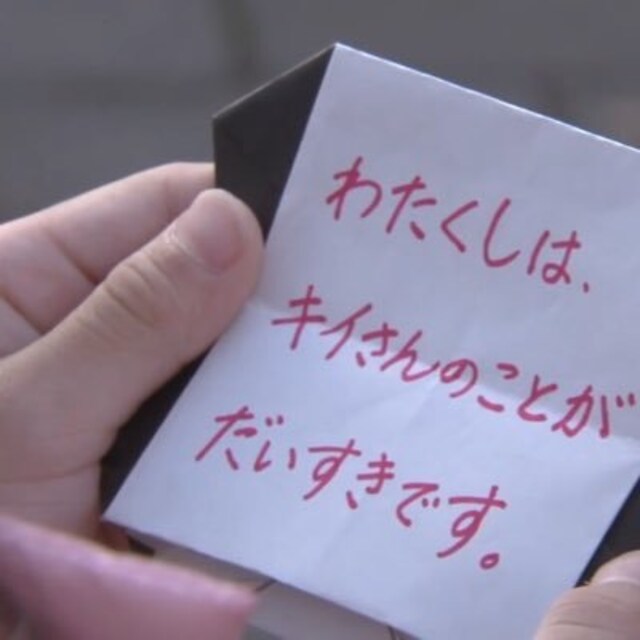 わたくしは、
キイさんのことが
だいすきです。